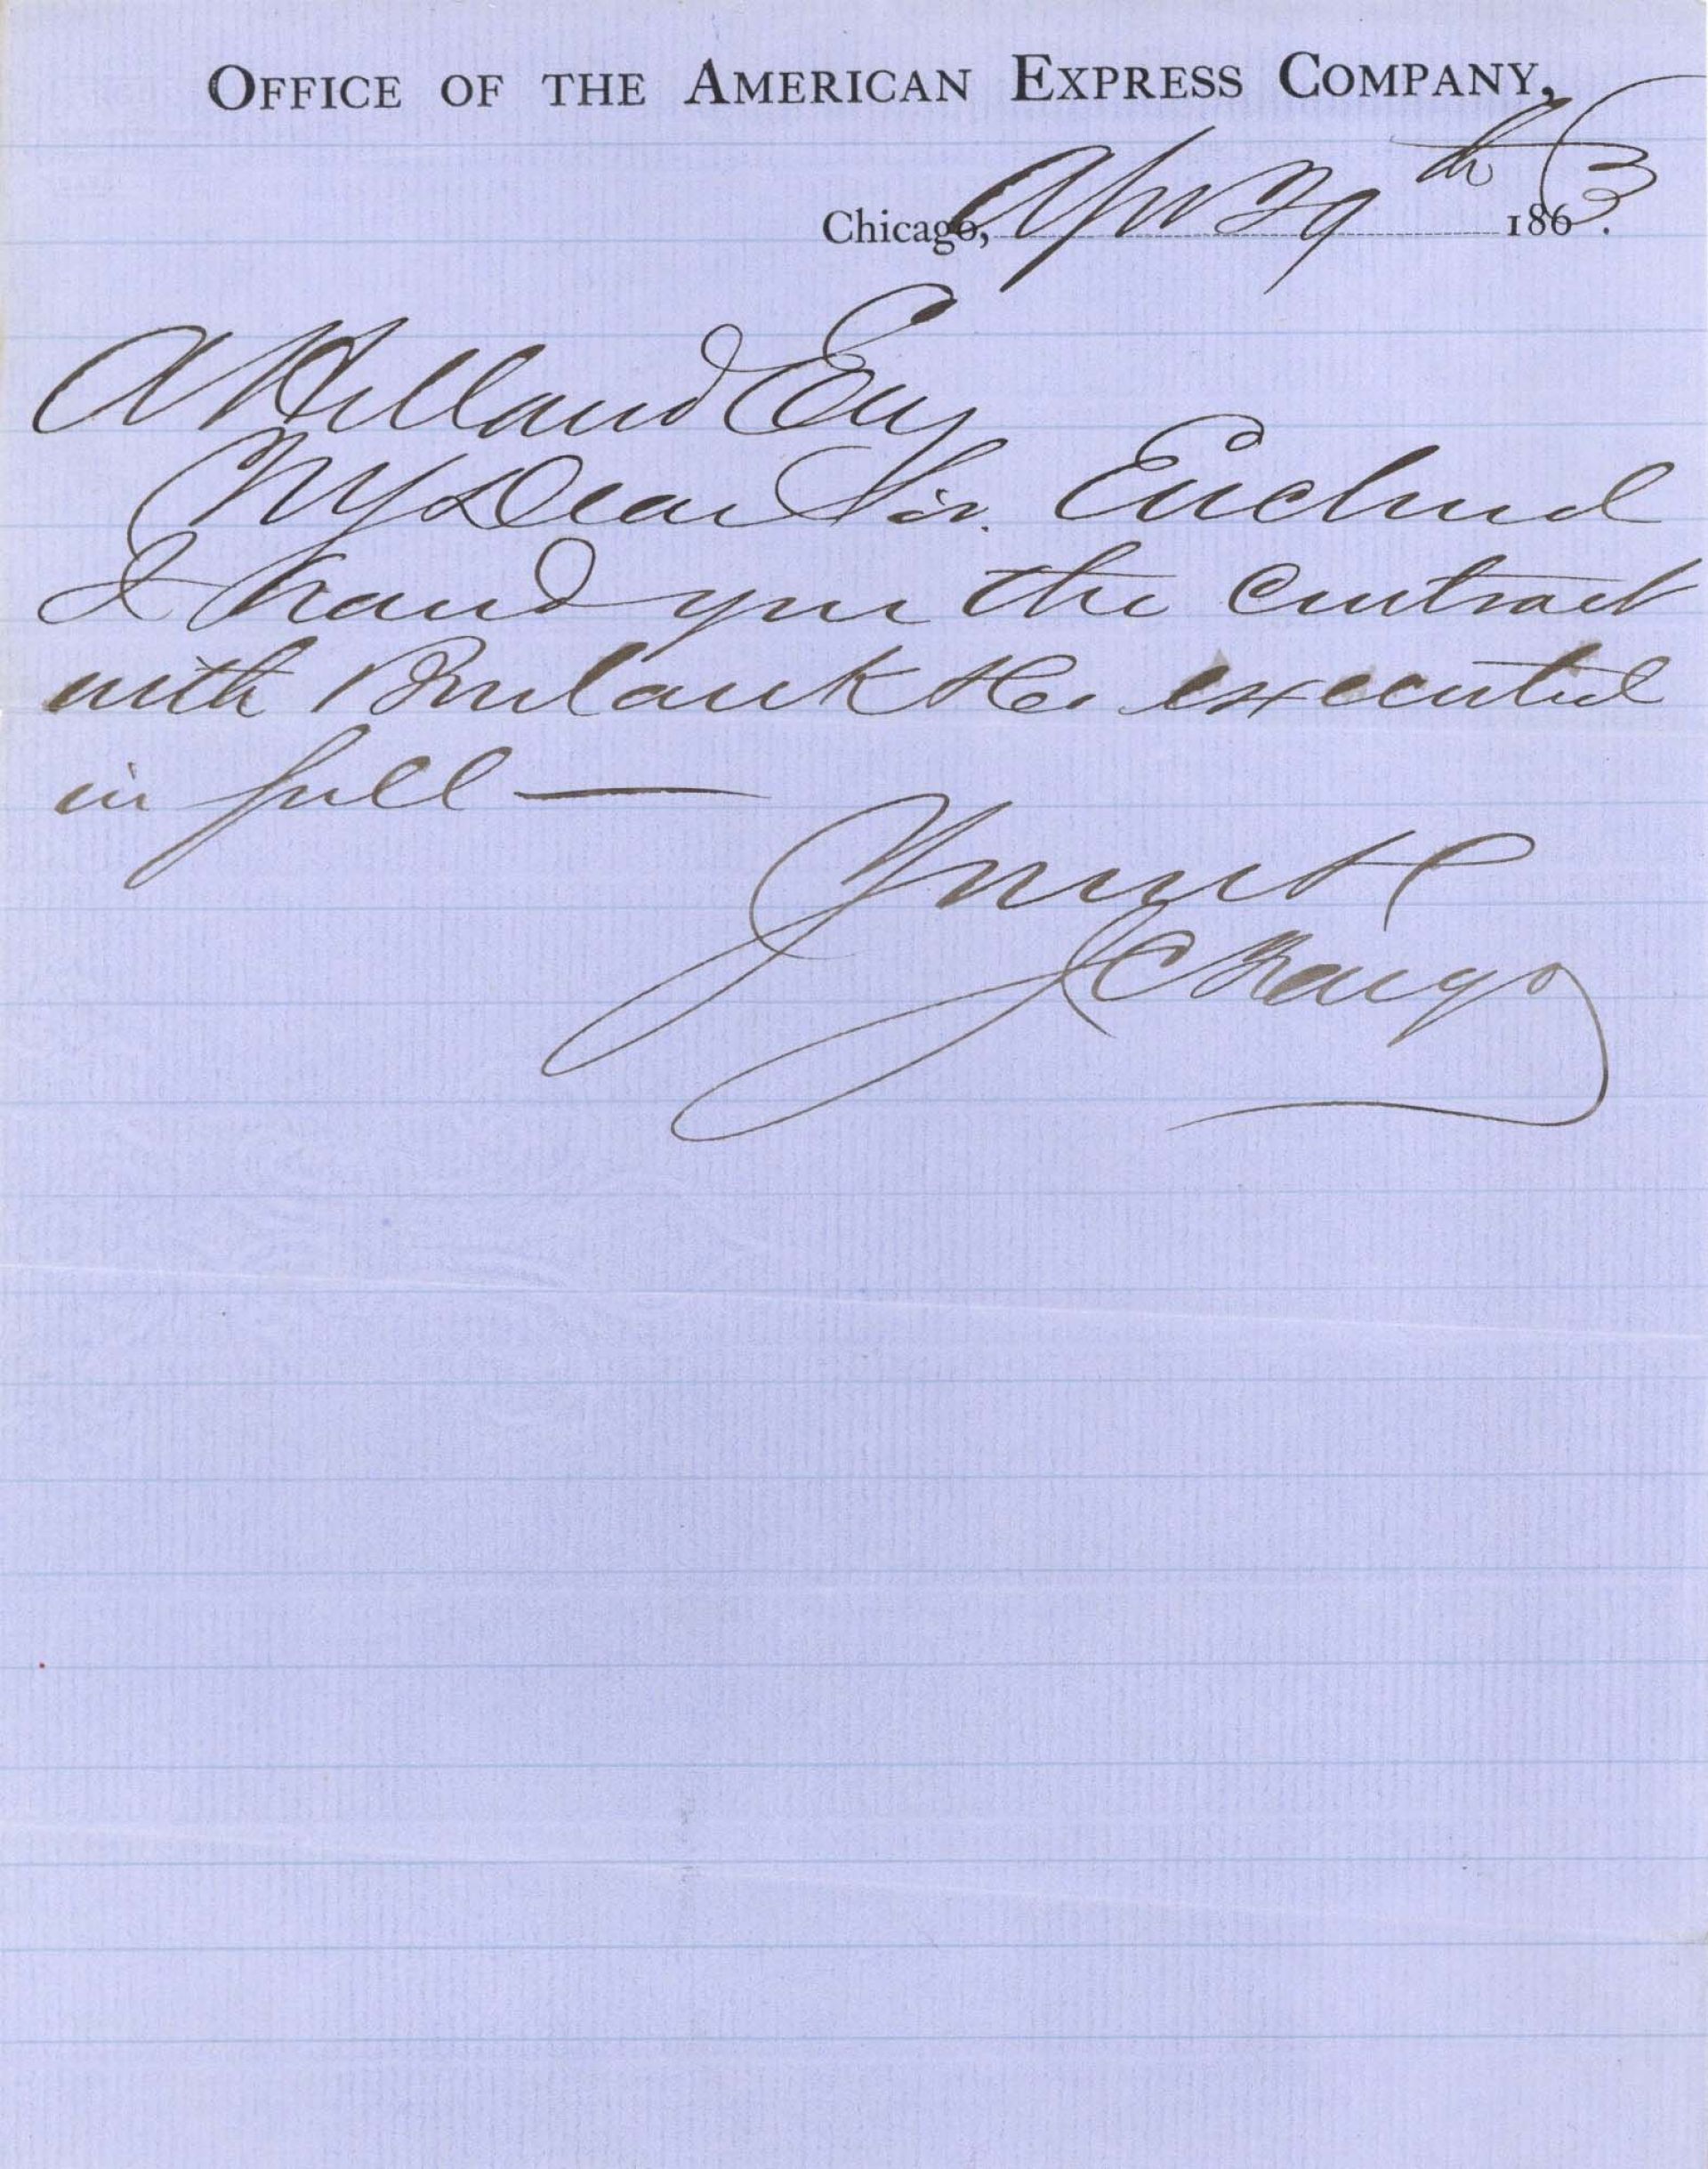 OFFICE OF THE AMERICAN EXPRESS COMPANY,
Chicago, Apr 29th 1863.
A Holland Esq
My Dear Sir. Enclosed
I hand you the Contract
with executed
in full —
Yours
J C Fargo